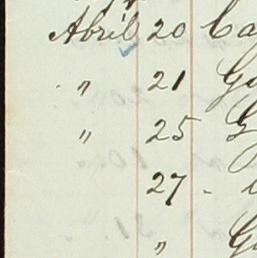 Abril 20 Ca
" 21 G
" 25 G
27 -
" G